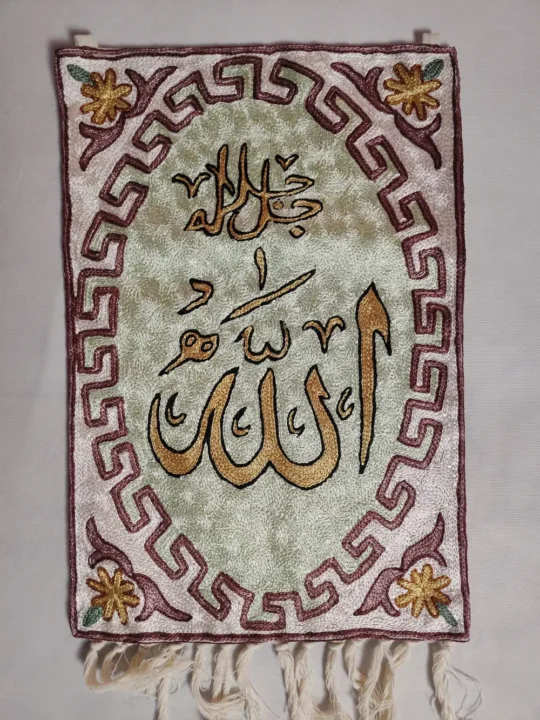 جل جلاله
الله